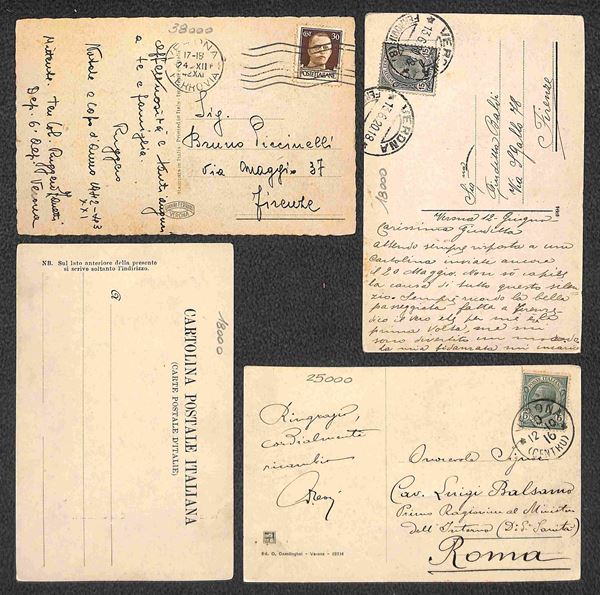 38000
VERONA
17-18
24 XII
42 XXI
FERROVIA
30
POSTE ITALIANE
Sig.
Bruno Piccinelli
Via Maggio 37
Firenze
affettuosità e tanti auguri
a te e famiglia.
Ruggero
Natale e capo d'anno 1942-43
XXI
Mittente: Ten. Col. Ruggero
Dep. 6° Verona
VERONA
13.6
VERONA
17.6.20 18
18000
Giuditta Baldi
Via Stalla 78
Firenze
Verona 12 Giugno
Carissima Giuditta
attendo sempre risposta a una
Cartolina inviata ancora
il 20 Maggio. Non sò capire
la causa di tutto questo silen-
zio. Sempre ricordo la bella
passeggiata fatta a Firenze
dico il vero che per me è la
prima volta che mi
sono divertito un mondo
la mia fidanzata mi
NB. Sul lato anteriore della presente
si scrive soltanto l'indirizzo.
18000
CARTOLINA POSTALE ITALIANA
(CARTE POSTALE D'ITALIE)
25000
Ringrazio,
cordialmente
ricambio
POSTE ITALIANE
12 16
(CENTRO)
Onorevole Signor
Cav. Luigi Balsamo
Primo Ragioniere al Ministero
dell'Interno (Dir. Sanità)
Roma
Ed. G. Gardinghei - Verona